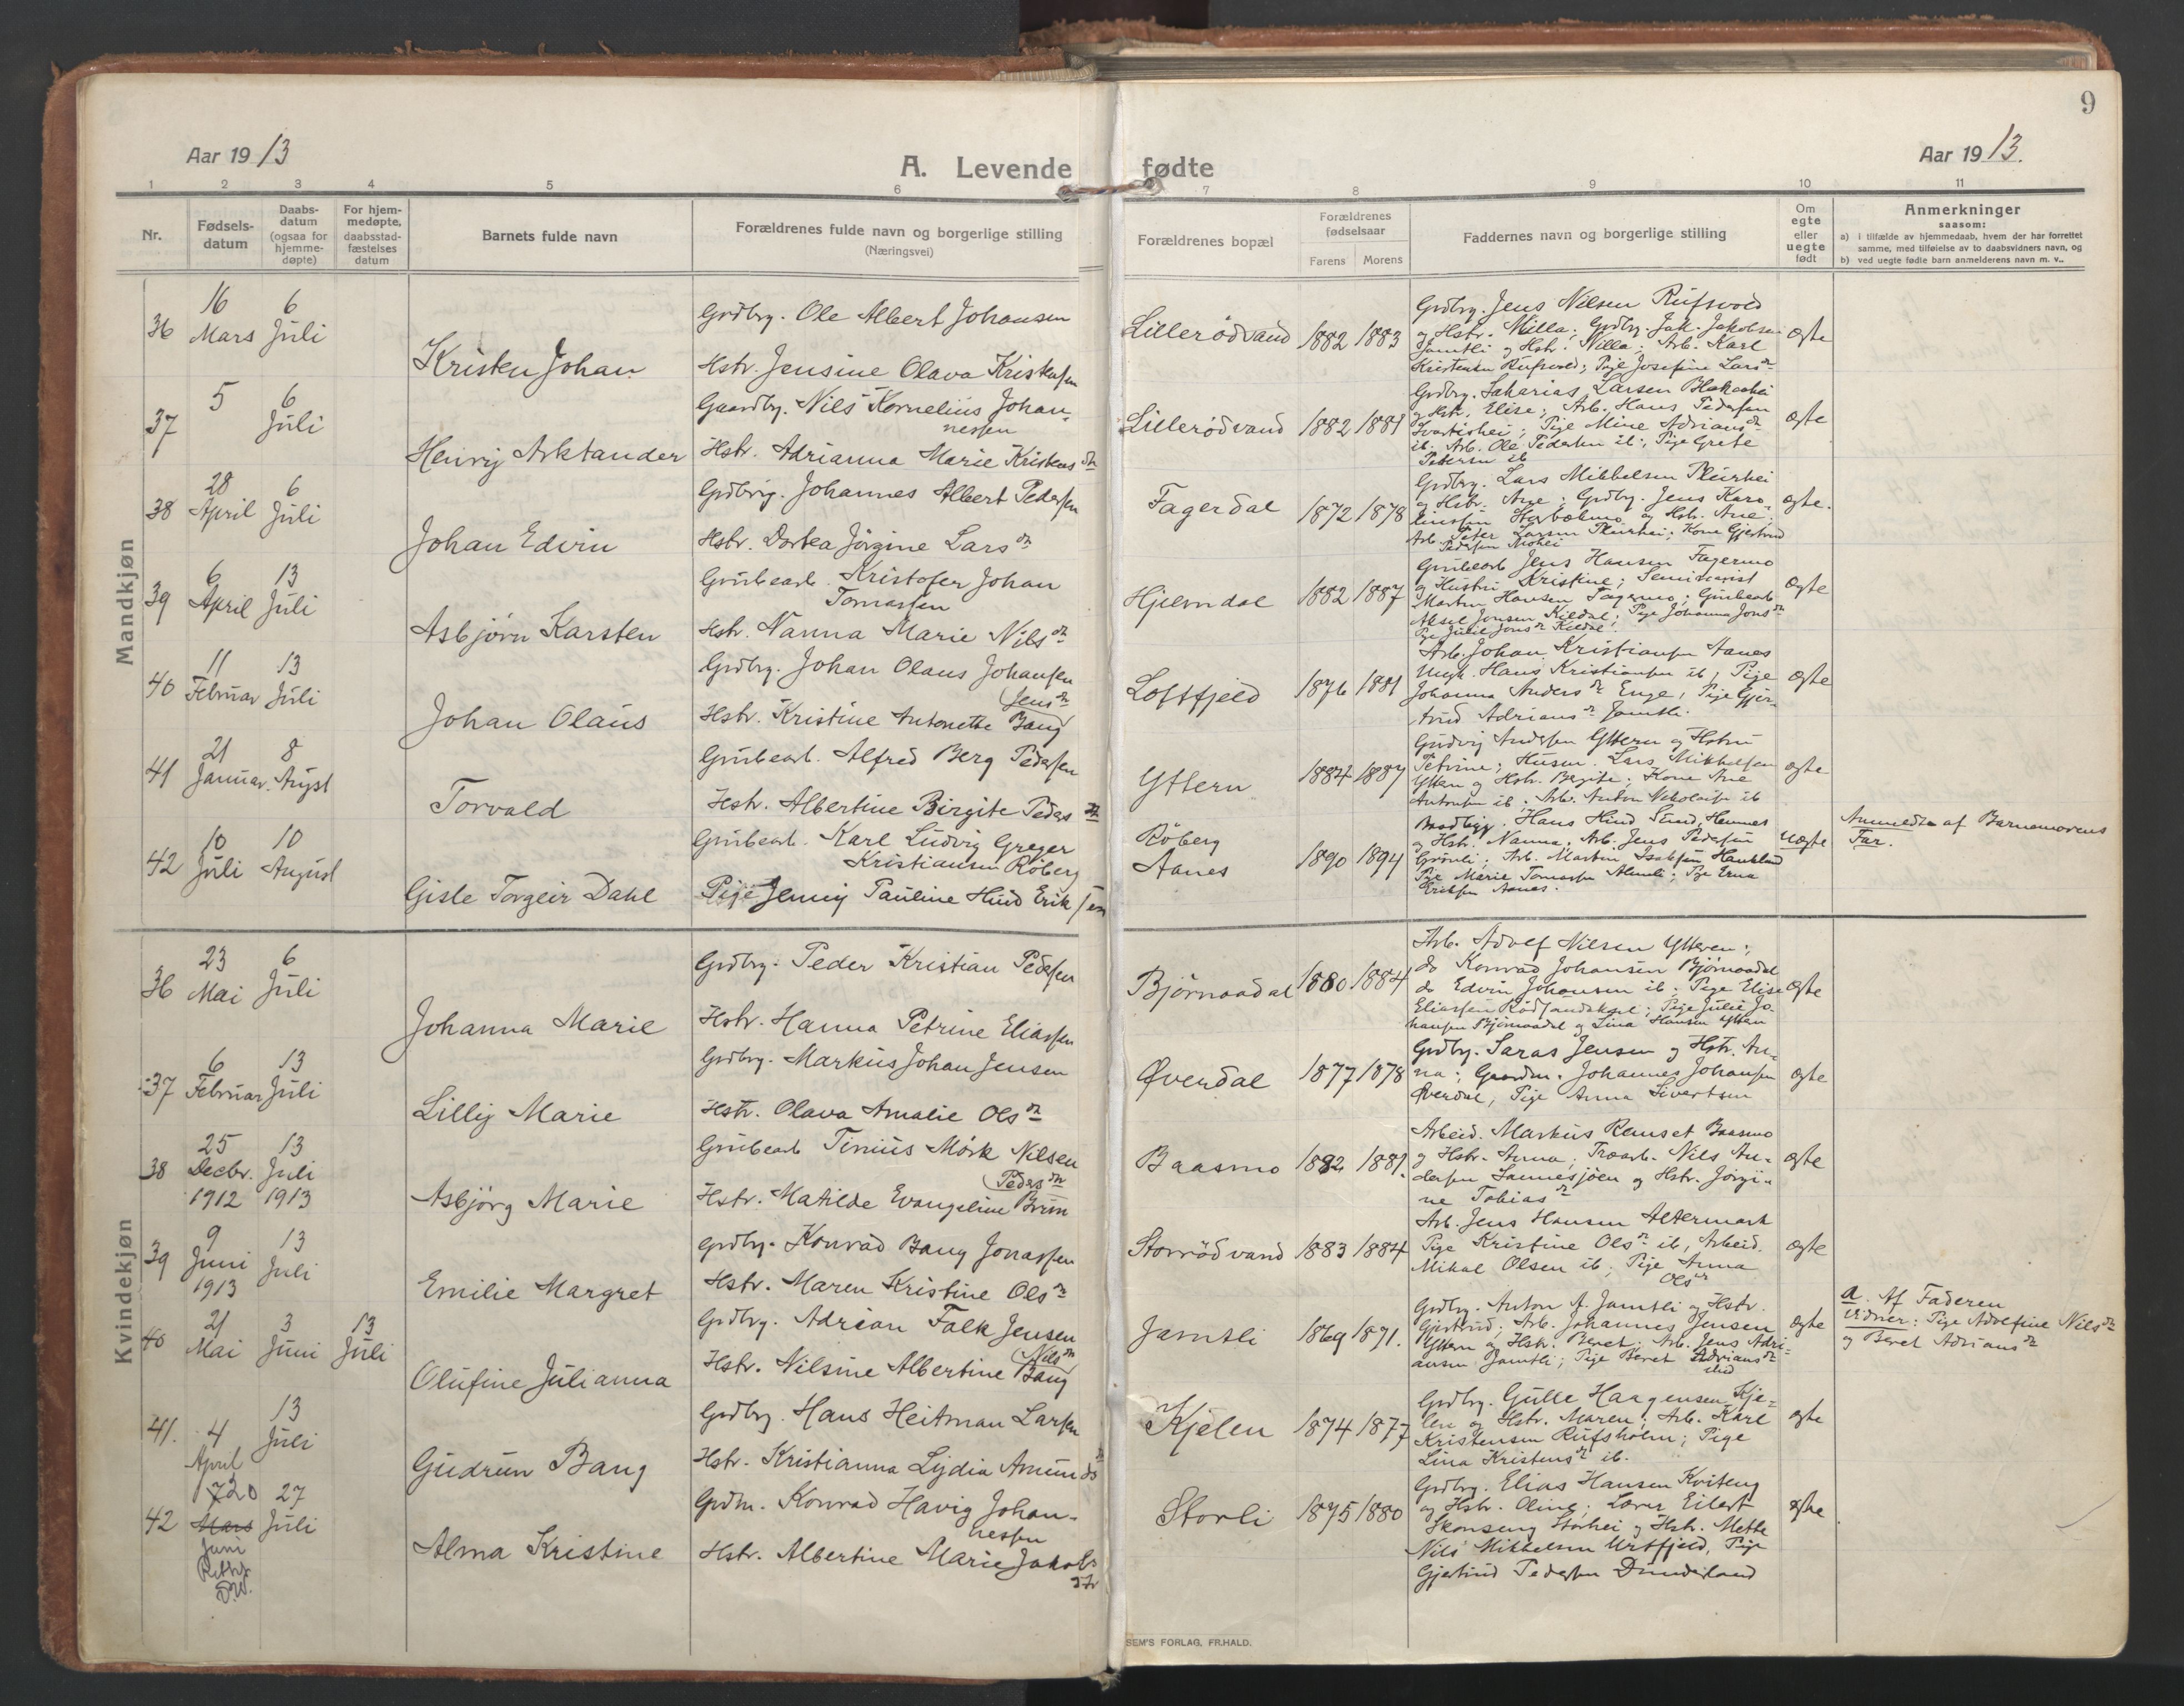 9
Aar 1913
A. Levende fødte
Aar 1913.
1 2 3 4 5 6 7 8 9 10 11
Nr.
Fødsels-
datum
Daabs-
datum
(ogsaa for
hjemme-
døpte)
For hjem-
medøpte,
daabsstad-
fæstelses
datum
Barnets fulde navn
Forældrenes fulde navn og borgerlige stilling
(Næringsvei)
Forældrenes bopæl
Forældrenes
fødselsaar
Farens Morens
Faddernes navn og borgerlige stilling
Om
egte
eller
uegte
født
Anmerkninger
saasom:
a) i tilfælde av hjemmedaab, hvem der har forrettet
samme, med tilføielse av to daabsvidners navn, og
b) ved uegte fødte barn anmelderens navn m. v..
Mandkjøn
36 16 Mars 6 Juli
Kristen Johan
Grdbrg. Ole Albert Johansen
Hstr. Jensine Olava Kristensen
Lillerödvand 1882 1883
Grdbrg. Jens Nilsen Rufsvold
og Hstr. Milla; Grdbrg. Jak. Jakobsen
Jamtli og Hstr. Nilla; Arb. Karl
Kristensen Rufsvold; Pige Josefine Larsdr
egte
37 5 6 Juli
Henrij Arktander
Gaardbr. Nils Kornelius Johan-
nessen
Hstr. Adrianna Marie Kristensdtr
Lillerödvand 1882 1881
Grdbrg. Sakarias Larsen Blakaahei
og Hstr. Elise; Arb. Hans Pedersen
Svartishei; Pige Mine Adriansdr
ib. Arb. Ole Pedersen ib; Pige Grete
Pedersen ib
egte
38 28 April 6 Juli
Johan Edvin
Grdbrg. Johannes Albert Pedersen
Hstr. Dorkea Jörgine Larsdr
Fagerdal 1872 1878
Grdbrg. Lars Mikkelsen Plurhei
og Hstr. Ane; Grdbg. Jens Karo-
liussen og Hstr. Ane;
Arb. Peter Larsen Plurhei; Kone Gjertrud
Pedersen Mohei
egte.
39 6 April 13 Juli
Asbjörn Karsten
Grubearb. Kristofer Johan
Tomassen
Hstr. Nanna Marie Nilsdr
Hjelmdal 1882 1887
Grubearb Jens Hansen Fagermo
og Hustru Kristine; Seminarist
Martin Hansen Fagermo; Grubearb
Aksel Jonsen Kildal; Pige Johanna Jonsdr
Pge Julie Jonsdr Kildal.
egte
40 11 Februar 13 Juli
Johan Olaus
Grdbrg. Johan Olaus Johansen
(Jensdr)
Hstr. Kristine Antonette Bang
Loftfjeld 1876 1881
Arb. Johan Kristiansen Aanes
Ungk. Hans Kristiansen ib; Pige
Johanna Andersdr Enge; Pige Gjer-
trud Adriansdr Jamtli.
egte
41 21 Januar. 8 August
Torvald
Grubearb. Alfred Berg Pedersen
Hstr. Albertine Birgite Pedersdtr
Yttern 1884 1887
Andersen Yttern og Hstru
Petrine; Husm. Lars Mikkelsen
Yttern og Hstr. Bergite; Kone Ane
Antonsen ib; Arb. Anton Nikolaisen ib
egte
42 10 Juli 10 August
Gisle Torgeir Dahl
Grubearb. Karl Ludvig Greger
Kristiansen Röberg
Pige Jenny Pauline Hind Eriksen
Röberg
Aanes 1890 1894
Hans Hind
og Hstr. Nanna; Arb. Jens Pedersen
Grönli; Arb. Martin Isaksen
Pige Marie Tomassen; Pge Erna
Eriksen Aanes.
uegte
Anmeldte af Barnemorens
Far.
Kvindekjøn
36 23 Mai 6 Juli
Johanna Marie
Grdbrg. Peder Kristian Pedersen
Hstr. Hanna Petrine Eliassen
Björnaadal 1880 1884
Arb. Adolf Nilsen Ytteren;
do Konrad Johansen Björnaadal
do Edvin Johansen ib; Pige Elise
Eliassen; Pige Julie Jo-
hansen Björnaadal og Lina Hansen Yttern
egte
37 6 Februar 13 Juli
Lillij Marie
Grdbrg. Markus Johan Jensen
Hstr. Olava Amalie Olsdr
Øverdal 1877 1878
Grdbrg. Saras Jensen og Hstr. An-
na; Gaardm. Johannes Johansen
Øverdal, Pige Anna Sivertsen
egte
38 25 Decbr. 1912 13 Juli 1913
Asbjörg Marie
Grubearb Tinius Mörk Nilsen
(Pedersdtr)
Hstr. Matilde Evangeline Brun
Baasmo 1882 1881.
Arbeid. Markus Ranset Baasmo
og Hstr. Anna; Træarb. Nils An-
dersen Sannesjöen og Hstr. Jörgi-
ne Tobiasdr
egte
39 9 Juni 1913 13 Juli
Emilie Margret
Grdbrg. Konrad Bang Jonassen
Hstr. Maren Kristine Olsdr
Storrödvand 1883 1884
Arb. Jens Hansen Altermark
Pige Kristine Olsdr ib, Arbeid.
Mikal Olsen ib; Pige Anna
Olsdr
egte
40 21 Mai 3 Juni 13 Juli
Olufine Julianna
Grdbrg. Adrian Falk Jensen
(Nilsdr)
Hstr. Nilsine Albertine Bang
Jamtli 1869 1871.
Grdbrg. Anton A. Jamtli og Hstr.
Gjertrud; Arb. Johannes Jensen
Yttern og Hstr. Beret; Arb. Jens Adri-
ansen Jamtli; Pige Beret Adriansdr
ibid
egte
a. Af Faderen
Vidner: Pige Adolfine Nilsdr
og Beret Adriansdr
41. 4 April 13 Juli
Gudrun Bang
Grdbrg. Hans Heitman Larsen
Hstr. Kristianna Lydia Amundsdr
Kjelen 1874 1877
Grdbrg. Gulle Haagensen Kje-
len og Hstr. Maren; Arb. Karl
Kristensen Rufsholm; Pige
Lina Kristensdr ib.
egte
42 20 Mars Juni 27 Juli
Alma Kristine
Grdm. Konrad Havig Johan-
nessen
Hstr. Albertine Marie Jakobs
dtr
Storli 1875 1880
Grdbrg. Elias Hansen Kviteng
og Hstr. Oline; Lærer Eilert
Skonseng Storhei og Hstr. Mette
Nils Mikkelsen Urtfjeld, Pige
Gjertrud Pedersen Dunderland
egte
SEM'S FORLAG, FR.HALD.